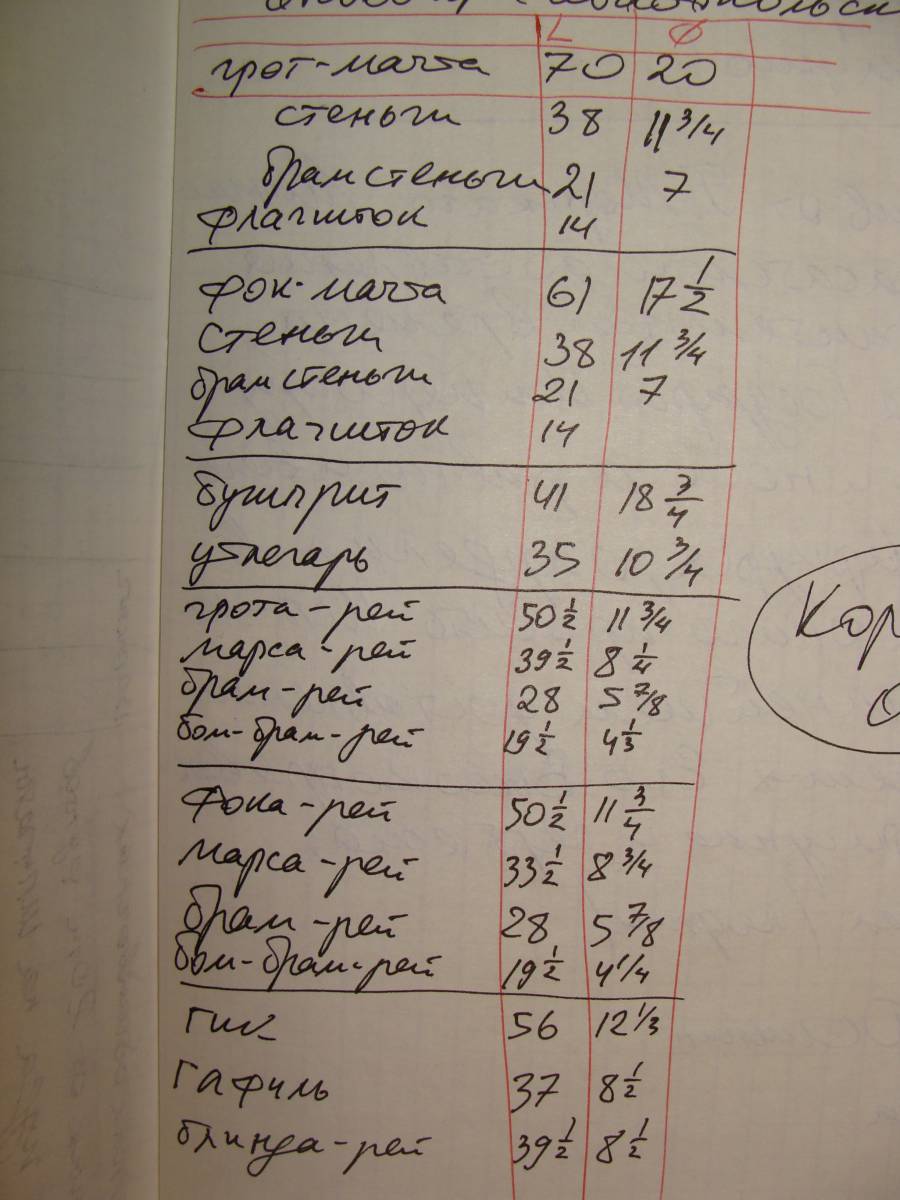 L ϕ
грот-мачта 70 20
стеньги 38 11 3/4
брам стеньги 21 7
флагшток 14
фок-мачта 61 17 1/2
стеньги 38 11 3/4
брам стеньги 21 7
флагшток 14
бушприт 41 18 3/4
утлегарь 35 10 3/4
грота-рей 50 1/2 11 3/4
марса-рей 39 1/2 8 1/4
брам-рей 28 5 7/8
бом-брам-рей 19 1/2 4 1/3
Фока-рей 50 1/2 11 3/4
марса-рей 33 1/2 8 3/4
брам-рей 28 5 7/8
бом-брам-рей 19 1/2 4 1/4
Гик 56 12 1/3
Гафель 37 8 1/2
блинда-рей 39 1/2 8 1/2
Кор